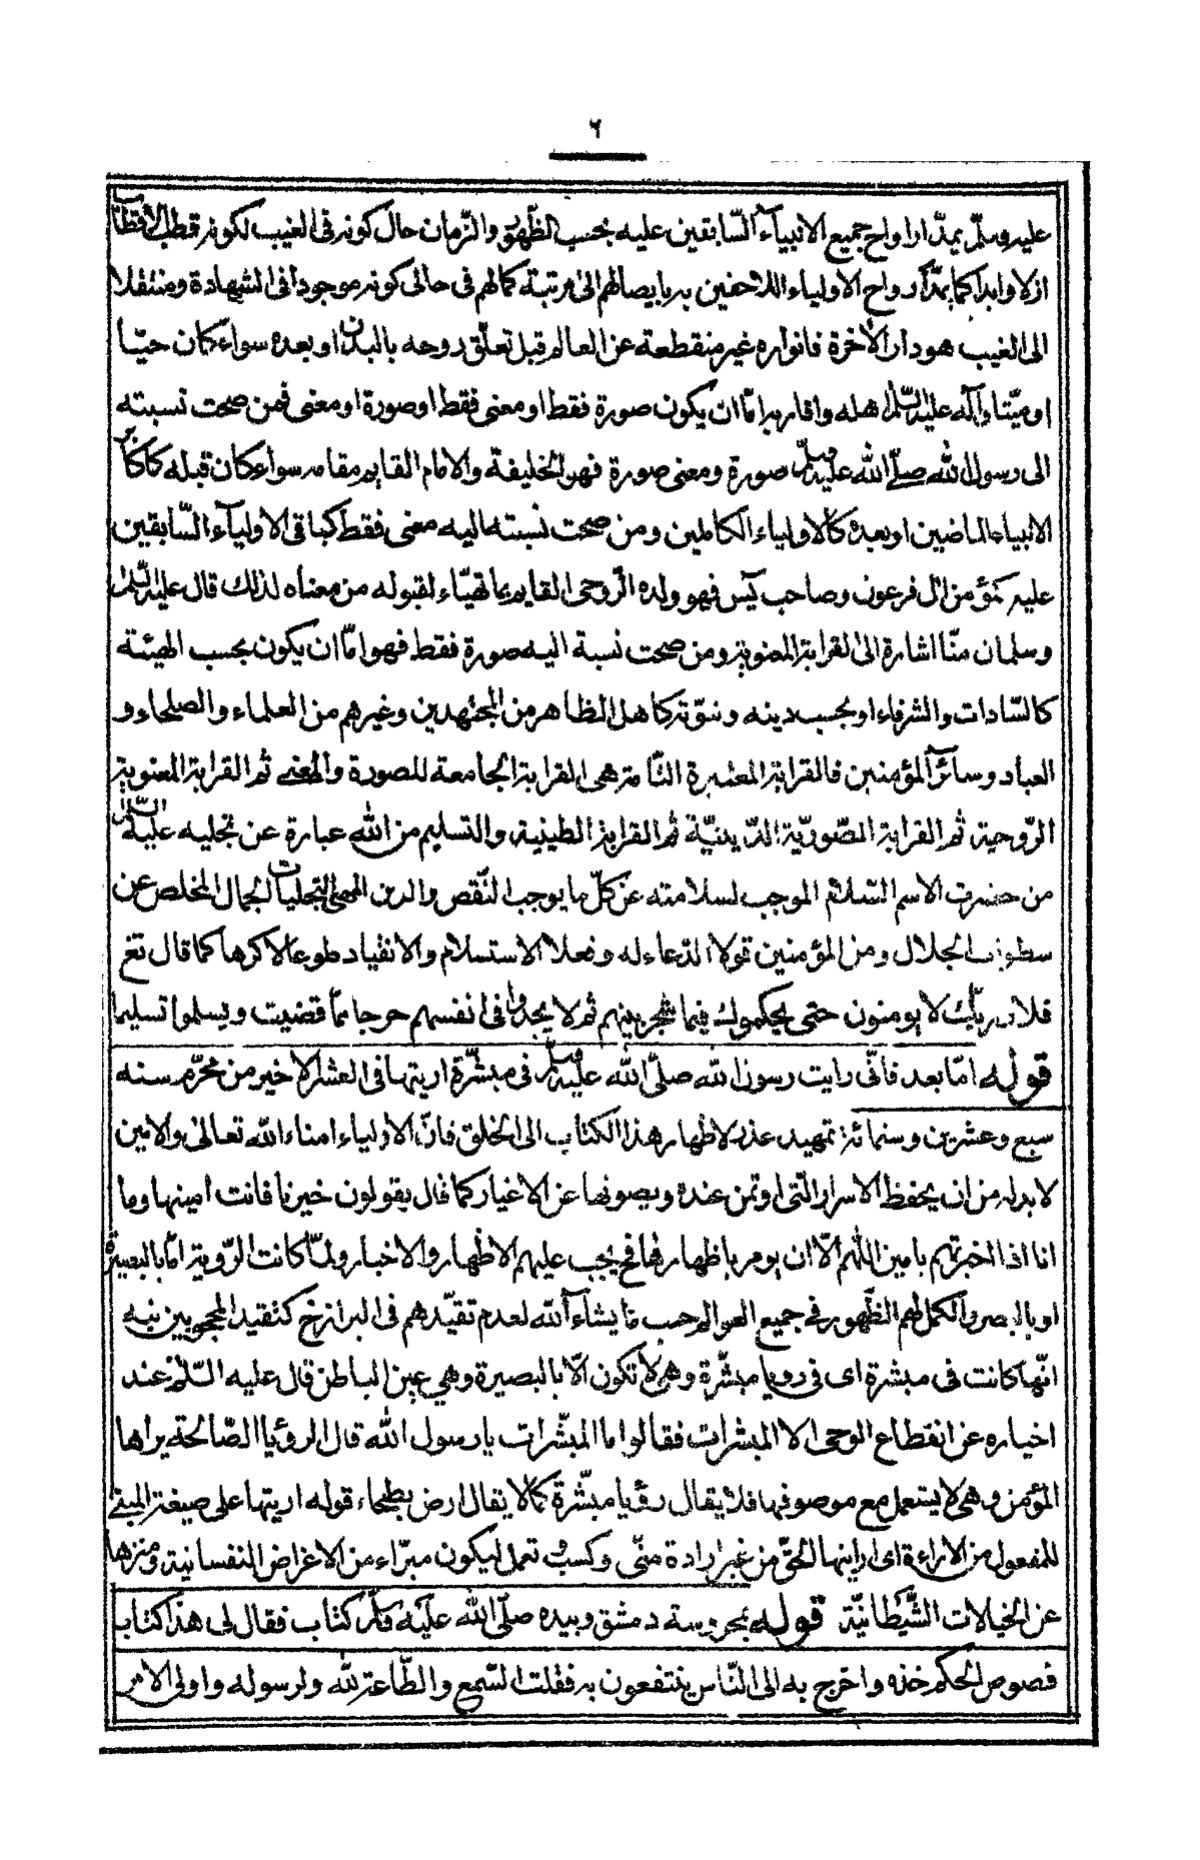 ٦
عليه وسلّم يمدّ ارواح جميع الانبيآء السّابقين عليه بحسب الظّهور والزّمان حال كونه فى الغيب لكونه قطب الأقطاب
ازلا وابدا كما يمدّ ارواح الاولياء اللاحقين به بايصالهم الى مرتبة كمالهم فى حالى كونه موجودا فى الشهادة ومنتقلا
الى الغيب هو دار الأخرة فانواره غير منقطعة عن العالم قبل تعلّق روحه بالبدن او بعده سواء كان حيّا
او ميّتا وآله عليه السّلم اهله واقاربه امّا ان يكون صورة فقط او معنى فقط او صورة او معنى فمن صحت نسبته
الى رسول الله صلّى الله عليه وسلّم صورة ومعنى صورة فهو الخليفة والامام القايم مقامه سواء كان قبله كاكابر
الانبياء الماضين او بعده كالاولياء الكاملين ومن صحت نسبته اليه معنى فقط كباقى الاوليآء السّابقين
عليه كمؤمن ال فرعون وصاحب يٓس فهو ولده الرّوحى القايم بما تهيّاء لقبوله من معناه لذلك قال عليه السّلم
وسلمان منّا اشارة الى القرابة المعنوية ومن صحت نسبة اليه صورة فقط فهو امّا ان يكون بحسب الهيئة
كالسّادات والشرفاء او بحسب دينه ونبوّته كاهل الظاهر من المجتهدين وغيرهم من العلماء والصلحاء و
العباد وسائر المؤمنين فالقرابة المعتبرة التّامّة هى القرابة الجامعة للصورة والمعنى ثم القرابة المعنوية
الرّوحية ثم القرابة الصّوريّة الدّينيّة ثم القرابة الطينية والتسليم من الله عبارة عن تجليه عليه السّلام
من حضرت الاسم السّلام الموجب لسلامته عن كلّ ما يوجب النّقص والدين المهيئ لتجليات الجمال المخلص عن
سطوات الجلال ومن المؤمنين قولا الدعاء له وفعلا الاستسلام والانقياد طوعا لا كرها كما قال تع
فلا وربّك لا يومنون حتى يحكموك فيما شجر بينهم ثم لا يجدوا فى انفسهم حرجا ممّا قضيت ويسلموا تسليما
قوله امّا بعد فانّى رايت رسول الله صلّى الله عليه وسلّم فى مبشّرة اريتها فى العشر الاخير من محرّم سنه
سبع وعشرين وستمائة تمهيد عذر لاظهار هذا الكتاب الى الخلق فانّ الاولياء امناء الله تعالى والامين
لا بد له من ان يحفظ الاسرار الّتى اوتمن عنده ويصونها عن الاغيار كما قال يقولون خبرنا فانت امينها وما
انا اذا اخبرتهم بامين اللّهم الّا ان يومر باظهارها فح يجب عليهم الاظهار والاخبار ولمّا كانت الرّوية امّا بالبصيرة
او بالبصر والكمل لهم الظّهور فى جميع العوالم حسب ما يشاء آلله لعدم تقيّدهم فى البرازخ كتقيد المحجوبين نبه
انّها كانت فى مبشرة اى فى رويا مبشّرة وهى لا تكون الّا بالبصيرة وهي عين الباطن قال عليه السّلم عند
اخباره عن انقطاع الوحى الا المبشرات فقالوا ما المبشّرات يا رسول الله قال الرؤيا الصّالحة يراها
المؤمن وهى لا يستعمل مع موصوفها فلا يقال رؤيا مبشّرة كما لا يقال ارض بطحاء قوله اريتها على صيغة المبنى
للمفعول من الاراءة اى ارانيها الحقّ من غير ارادة منّى وكسب وتعمل ليكون مبرّاء من الاغراض النفسانية ومنزها
عن الخيالات الشّيطانيّة قوله بمحروسة دمشق وبيده صلّى الله عليه وسلّم كتاب فقال لى هذا كتاب
فصوص الحكم خذه واخرج به الى النّاس ينتفعون به فقلت السّمع والطّاعة لله ولرسوله واولى الامر